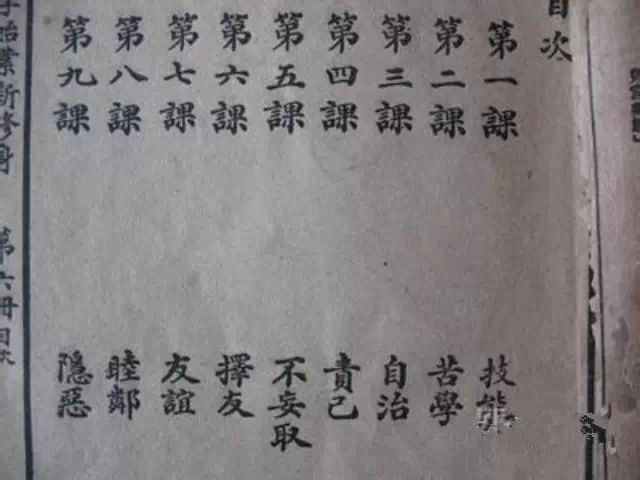 目次
第一課 技能
第二課 苦學
第三課 自治
第四課 責己
第五課 不妄取
第六課 擇友
第七課 友誼
第八課 睦鄰
第九課 隱惡
新修身 第六冊目次